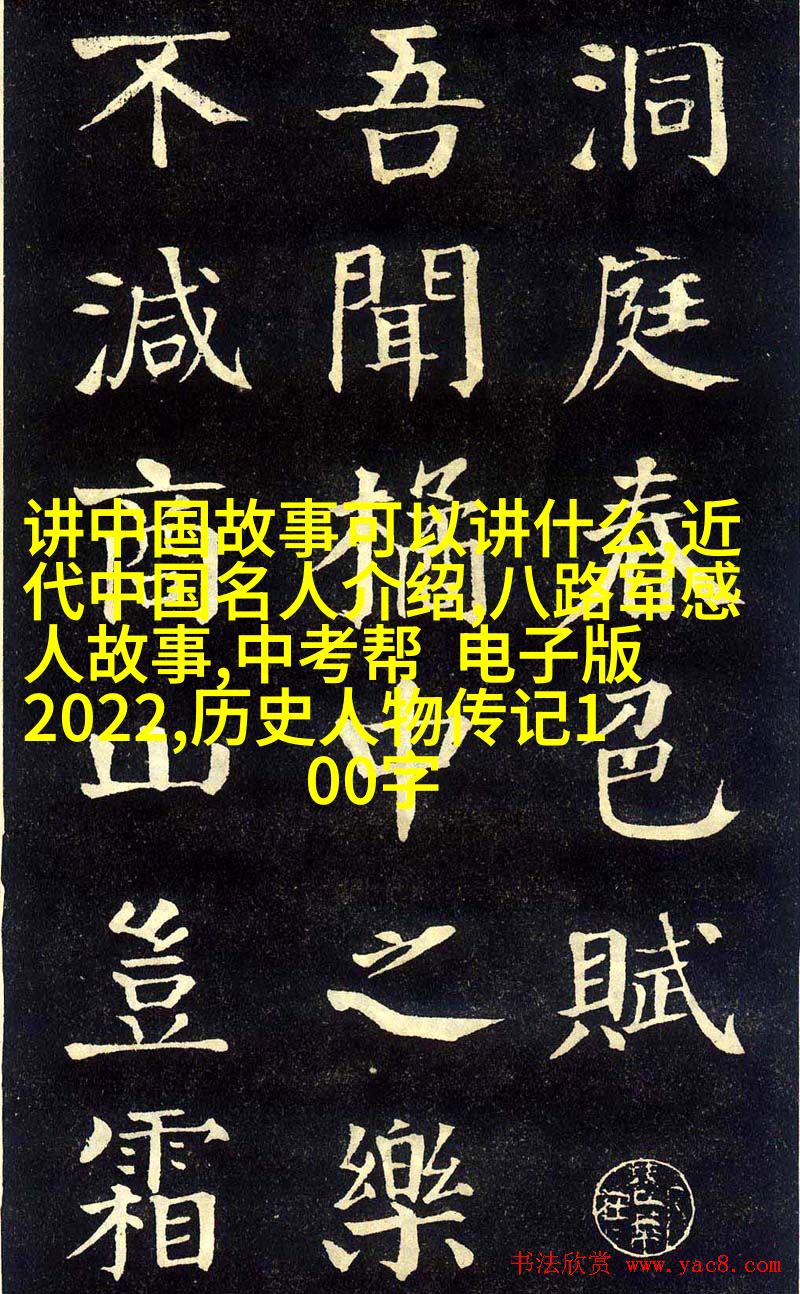 洞庭春色賦
吾聞橘中之樂
不減商山豈霜
讲中国故事可以讲什么,近
代中国名人介绍,八路军感
人故事,中考帮 电子版
2022,历史人物传记1
00字
书法欣赏 www.yac8.com